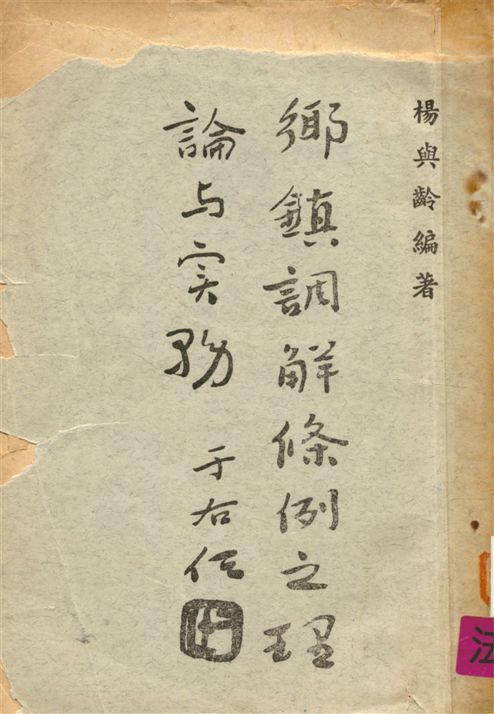 楊與齡編著
鄉鎮調解條例之理
論与实務
于右任
法